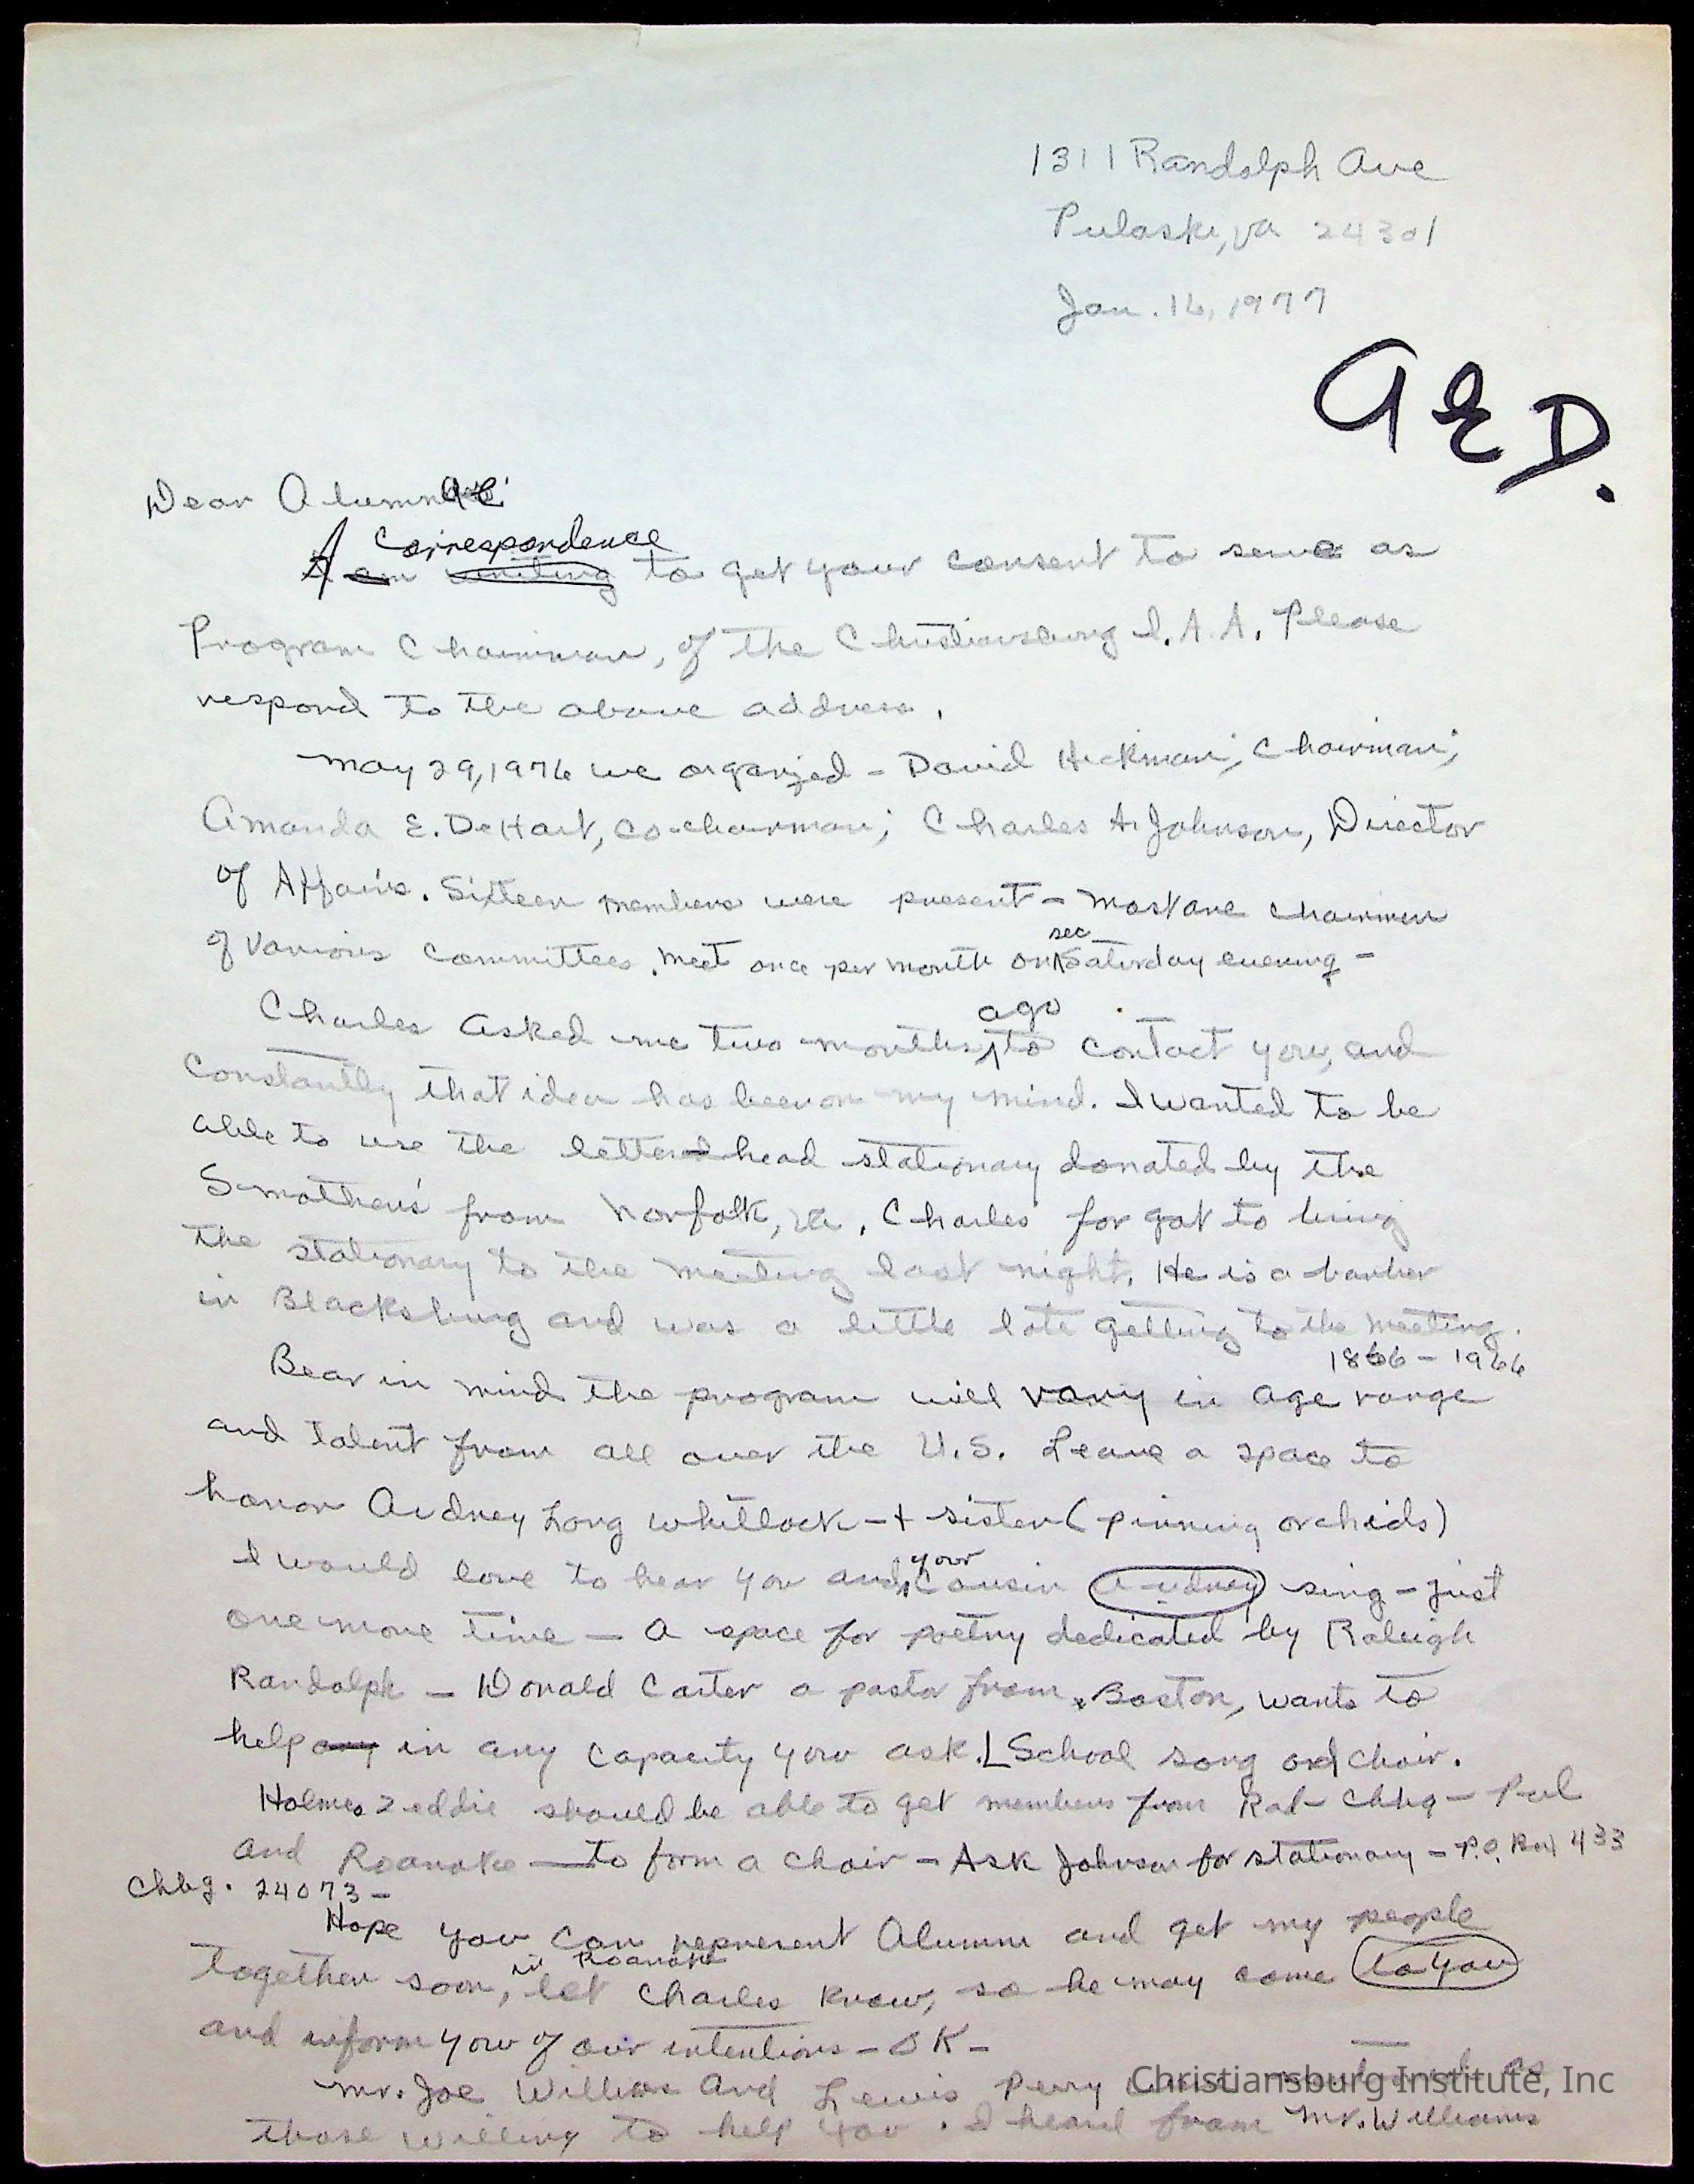 1311 Randolph Ave
Pulaski, Va 24301
Jan. 16, 1977
A E D.
Dear Alumnae:
A Correspondence
I am writing to get your consent to serve as
Program Chairman, of the Christiansburg I. A. A. Please
respond to the above address.
May 29, 1976 we organized - David Hickman, Chairman;
Amanda E. DeHart, co-chairman; Charles A. Johnson, Director
of Affairs. Sixteen members were present - most are chairmen
sec
of various committees. Meet once per month on Saturday evening -
ago
Charles asked me two months to contact you, and
constantly that idea has been on my mind. I wanted to be
able to use the letter head stationary donated by the
Smothers from Norfolk, Va. Charles forgot to bring
the stationary to the meeting last night. He is a barber
in Blacksburg and was a little late getting to the meeting.
1866 - 1966
Bear in mind the program will vary in age range
and talent from all over the U.S. Leave a space to
honor Audney Long Whitlock - + sister (pinning orchids)
your
I would love to hear you and cousin Audney sing - just
one more time - A space for poetry dedicated by Raleigh
Randolph - Donald Carter a pastor from Boston, wants to
help any in any capacity you ask. School song and choir.
Holmes Zeddie should be able to get members from Rad - Chbg - Pul
and Roanoke - to form a choir - Ask Johnson for stationary - P.O. Box 433
Chbg. 24073 -
Hope you can represent Alumni and get my people
in Roanoke
together soon, let Charles know, so he may come to you
and inform you of our intentions - OK -
Mr. Joe Williams and Lewis Perry as
those willing to help you. I heard from Mr. Williams
Christiansburg Institute, Inc